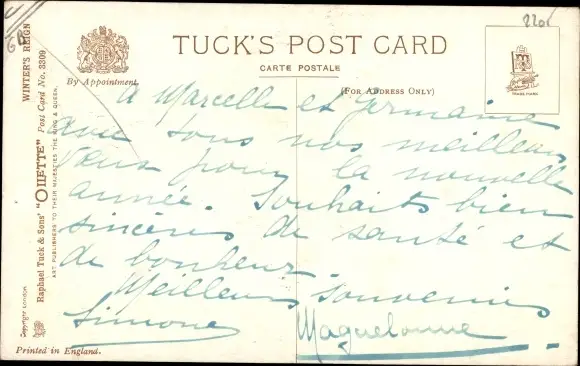 2205
WINTER'S REIGN
Raphael Tuck & Sons' "OILETTE" Post Card No. 3309
ART PUBLISHERS TO THEIR MAJESTIES THE KING & QUEEN.
Copyright London
Printed in England.
By Appointment.
TUCK'S POST CARD
CARTE POSTALE
(FOR ADDRESS ONLY)
TRADE MARK
A Marcelle et Germaine
avec tous nos meilleurs
vœux pour la nouvelle
année. Souhaits bien
sincères de santé et
de bonheur.
Meilleurs souvenirs
Simone Maguelonne